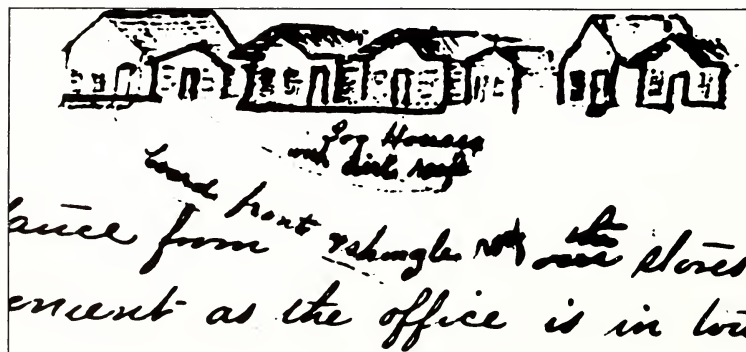 Log Houses
with dirt roofs
board front & shingle roof
from the stores
as the office is in